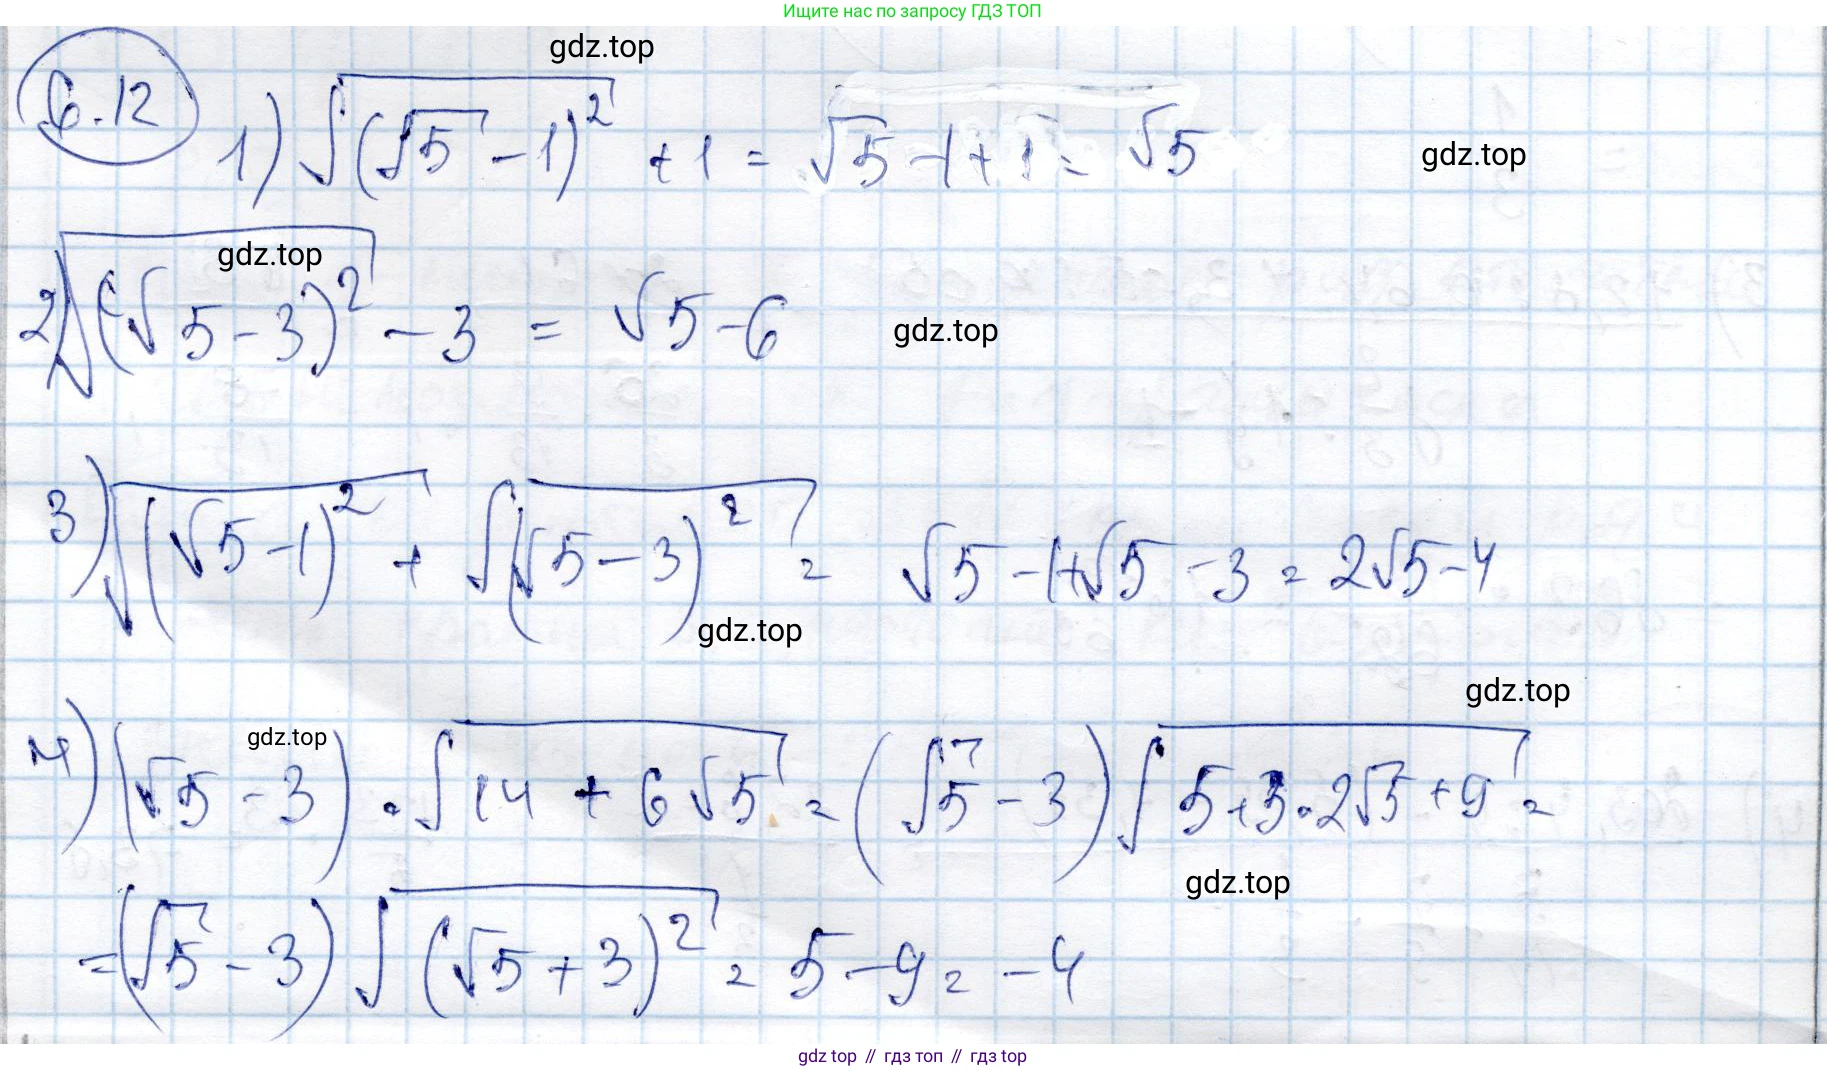 Ищите нас по запросу ГДЗ ТОП
gdz.top
6.12
1) √((√5 - 1)²) + 1 = √5 - 1 + 1 = √5
gdz.top
gdz.top
2) √((√5 - 3)²) - 3 = √5 - 6
gdz.top
3) √((√5 - 1)²) + √((√5 - 3)²) = √5 - 1 + √5 - 3 = 2√5 - 4
gdz.top
gdz.top
gdz.top
4) (√5 - 3) · √(14 + 6√5) = (√5 - 3) √(5 + 3 · 2√5 + 9) =
gdz.top
= (√5 - 3) √((√5 + 3)²) = 5 - 9 = -4
gdz top // гдз топ // gdz top